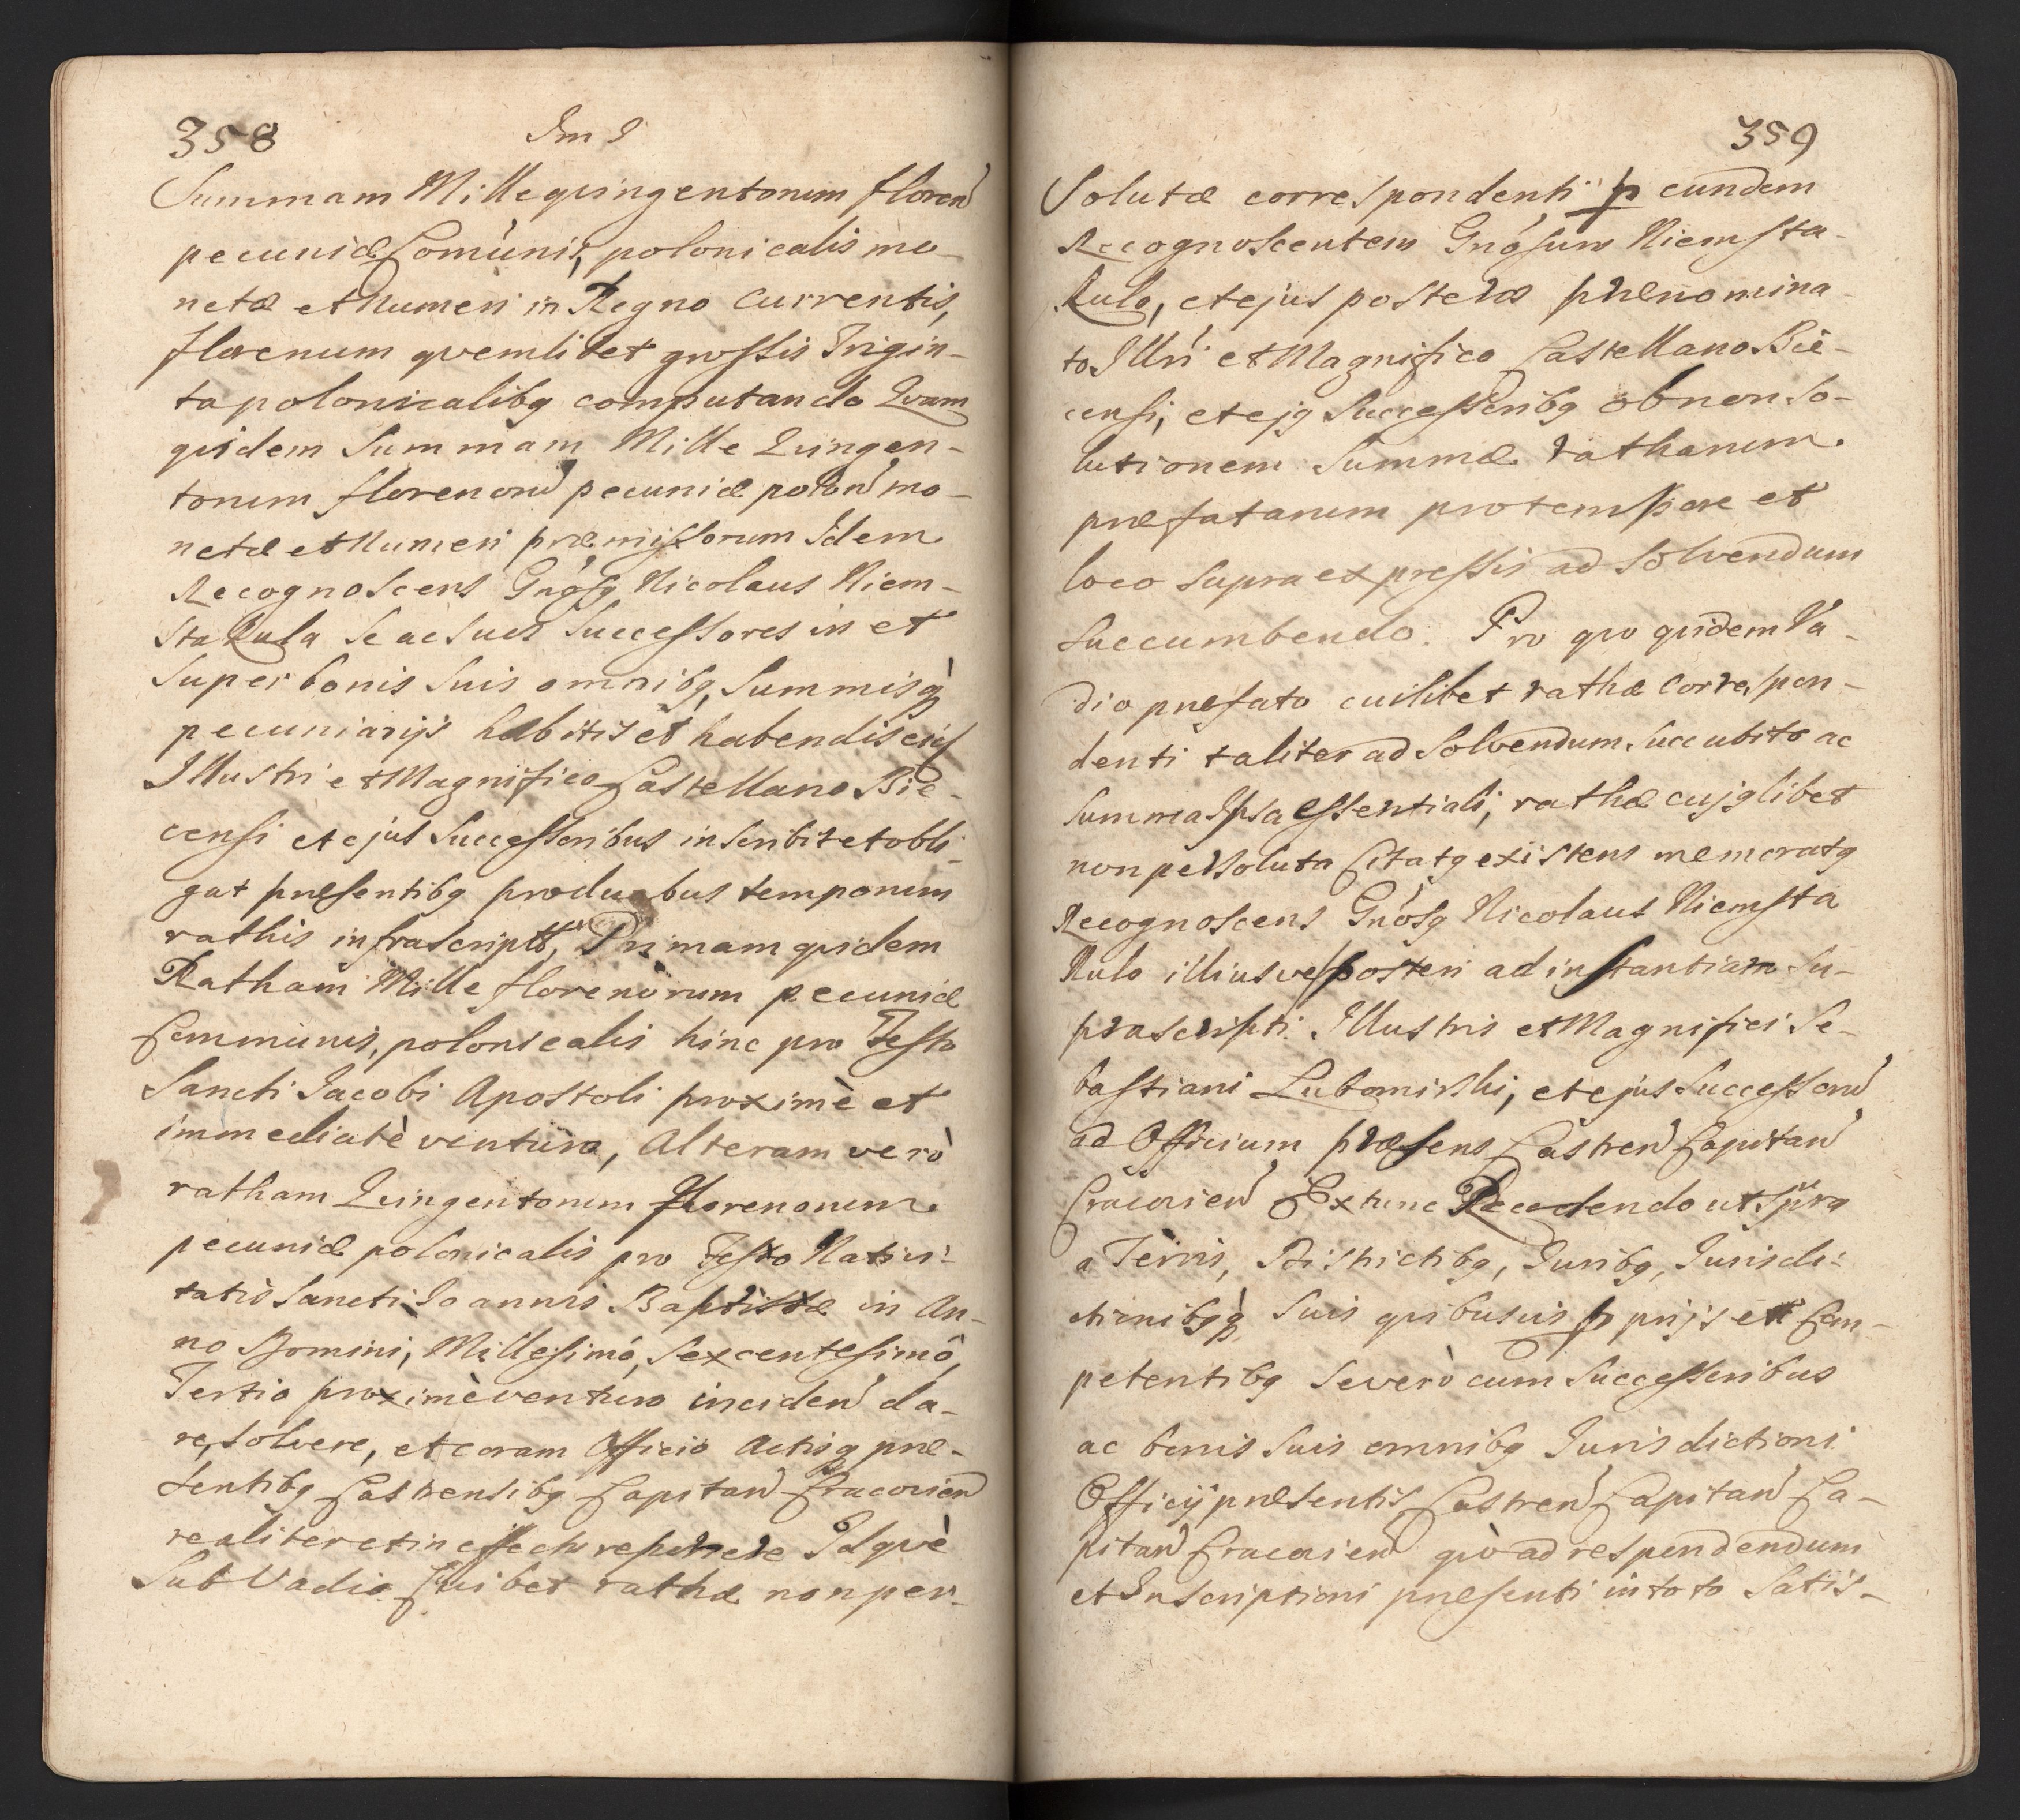 358
Summam Mille qvingentorum floren
pecuniæ Comùnis, polonicalis mo-
netæ et Numeri in Regno Currentis,
florenum qvemlibet grossis Trigin-
ta polonicalibq computando Qvam
qvidem Summam Mille Qvingen-
torum florenorū pecuniæ polon mo-
netæ et Numeri præmissorum Idem
Recognoscens Gnósq Nicolaus Niem-
sta Rula Se ac Suos Successores in et
Super bonis Suis omnibq, Summisq̀
pecuniarijs habitis et habendis eid
Illustri et Magnifico Castellano Bie-
censi et ejus Successoribus inscribit et obli-
gat præsentibq pro duabus temporum
rathis infrascriptis, Primam qvidem
Ratham Mille florenorum pecuniæ
Communis, polonicalis hinc pro Festo
Sancti Jacobi Apostoli proximè et
immediatè venturo, Alteram verò
ratham Qvingentorum Florenorum
pecuniæ polonicalis pro Festo Nativi-
tatis Sancti Joannis Baptistæ in An-
no Domini, Millesimó, Sexcentesimô,
Tertio proximè venturo inciden da-
re, solvere, et coram Officio Actisq præ-
sentibq Castrensibq Capitan Cracovien
realiter et in effectu reponere Idqvè
Sub Vadio Cuibet rathæ non per-
359
Solutæ correspondenti p eundem
Recognoscentem Gnósum Niemsta-
Rula, et ejus posteros prænomina-
to Illri et Magnifico Castellano Bie-
censi, et ejq Successoribq ob non So-
lutionem Summæ ratharum
præfatarum pro tempore et
loco supra expressis ad Solvendum
Succumbendo. Pro qvo qvidem Va-
dio præfato cuilibet rathæ correspon-
denti taliter ad Solvendum Succubito ac
Summa Ipsa essentiali, rathæ cujqlibet
non persoluta Citatq existens memoratq
Recognoscens Gnósq Nicolaus Niemsta
Rula illiusve posteri ad instantiam Su-
prascripti Illustris et Magnifici Se-
bastiani Lubomirski, et ejus Successorū
ad Officium præsens Castren Capitan
Cracovien Ex tunc Recedendo ut Supra
a Terris, Districtibq, Juribq, Jurisdi-
ctionibqq̀ Suis qvibusvis pprijs et Com-
petentibq Se verò cum Successoribus
ac bonis Suis omnibq Jurisdictioni
Officij præsentis Castren Capitan Ca-
pitan Cracovien qvò ad respondendum
et Inscriptioni præsenti in toto Satis-